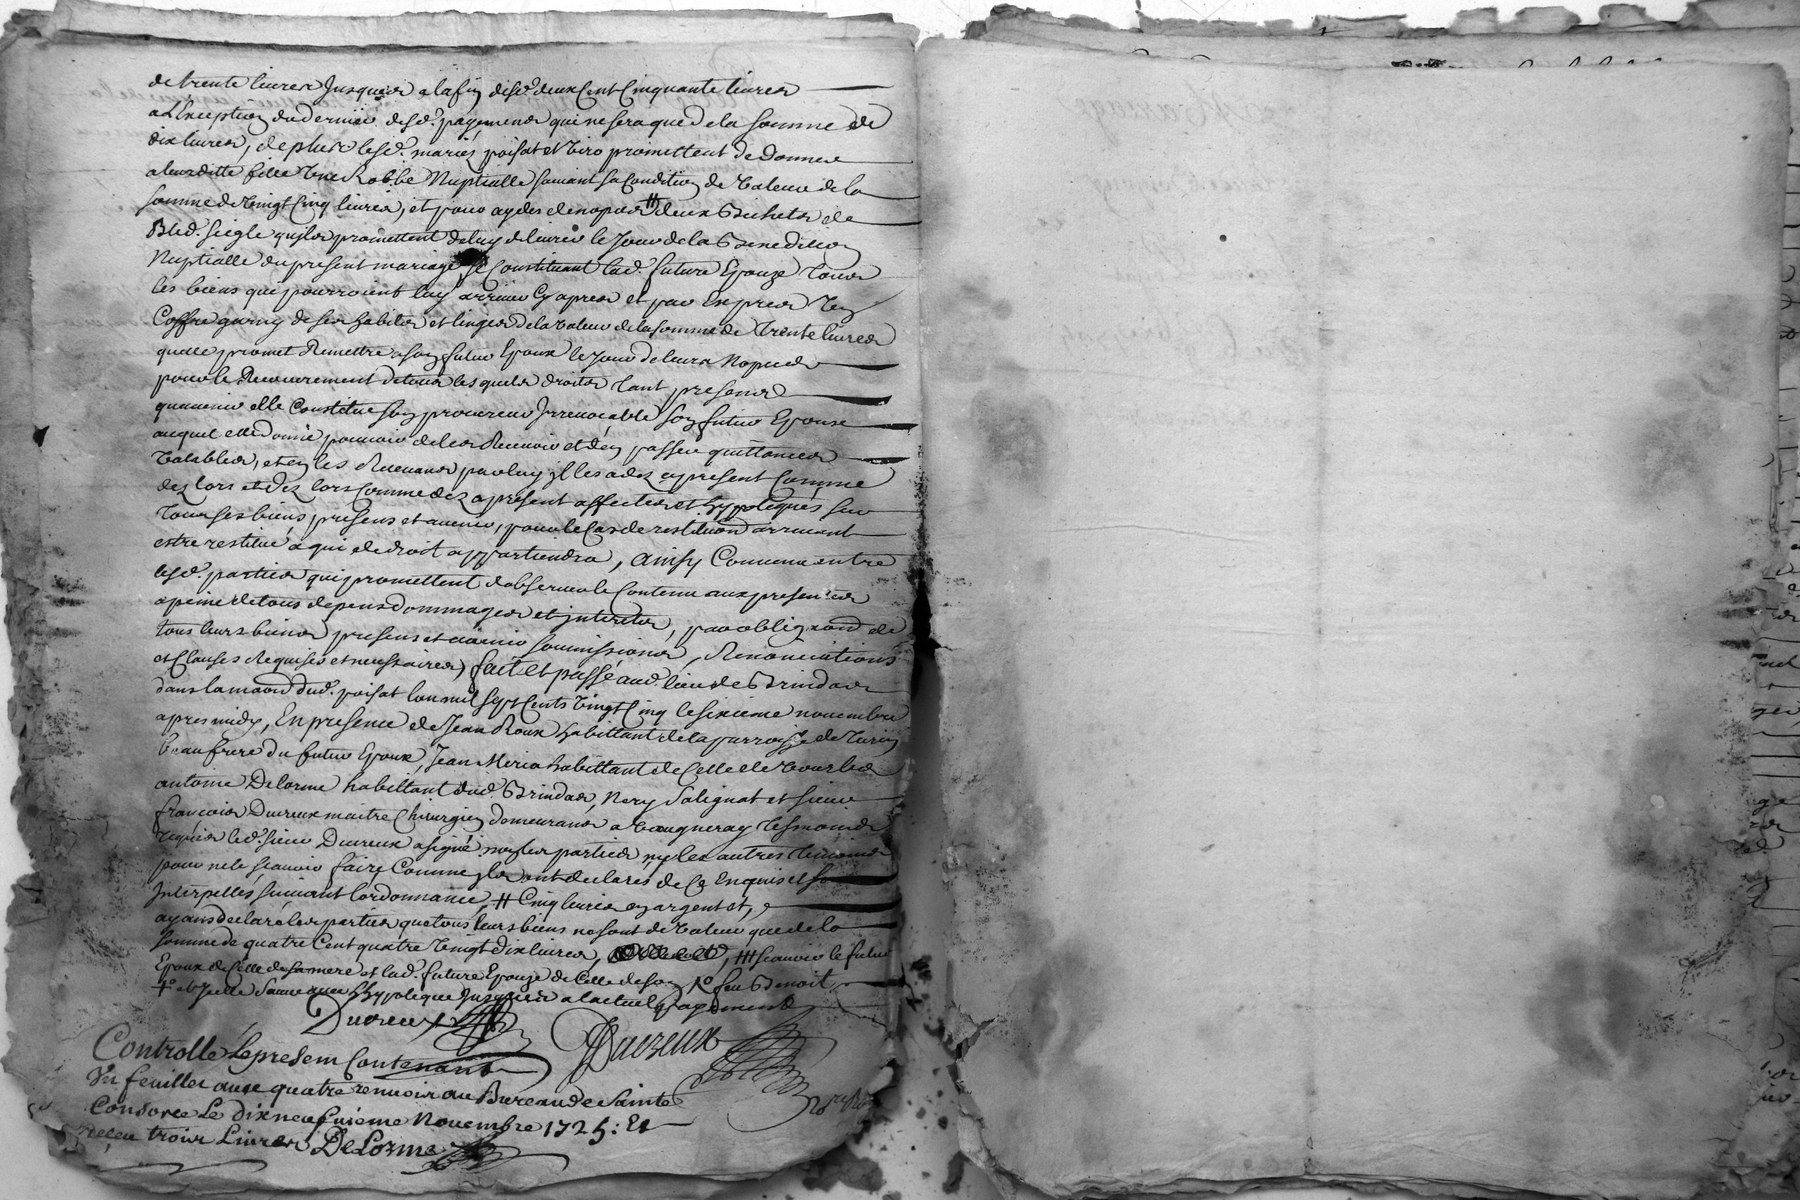 de trente livres Jusques a la fin desd. deux Cent Cinquante livres
a L'Exception du dernier desd. payements qui ne sera que de la somme de
dix livres, de plus lesd. mariez poisat et Viro promettent de donner
a leurditte fille Une Robbe Nuptialle suivant sa Condition de Valeur de la
somme de Vingt Cinq livres, et pour aydes de nopces # deux Bichets de
Bled Seigle quils promettent de luy delivrer le Jour de la Benediction
Nuptialle du present mariage, se Constituant lad. future Epouze Tous
les biens qui pourroient luy arriver Cy apres et par Expres Un
Coffre garny de ses habits et linges de la Valeur de la somme de Trente livres
quelle promet Remettre a son futur Epoux le Jour de leurs Nopces
pour le Recouvrement de tous lesquels droits Tant presens
quavenir elle Constitue son procureur Irrevocable son futur Epoux
auquel elle donne pouvoir de les Recevoir et d'en passer quittances
Valables, et en les Recevant par luy Il les a dez a present Comme
dez lors et dez lors Comme dez a present affectés et hypotequés sur
Tous ses biens presens et avenir, pour le Cas de restitution arrivant
estre restitué a qui de droit appartiendra, Ainsy Convenu entre
lesd. parties qui promettent d'observer le Contenu aux presentes
a peine de tous depens dommages et interets, par obligation de
tous leurs biens presens et avenir soumissions, Renonciations
et Clauses Requises et necessaires, fait et passé aud. lieu de Brindas
dans la maison dud. poisat lan mil sept Cents Vingt Cinq le sixieme novembre
apres midy, En presence de Jean Roux habittant de la parroisse de
beaufrere du futur Epoux, Jean habittant de Celle de
antoine Delorme habittant dud. Brindas, et sieur
francois Dureux maitre Chirurgien demeurant a Vaugneray Tesmoins
Requis led. sieur Dureux a signé non les parties ny les autres Temoins
pour ne le scavoir faire Comme Ils ont declarés de Ce Enquis et
Interpellés suivant lordonnance, # Cinq livres en argent et,
ayans declaré les parties que tous leurs biens ne sont de Valeur que de la
somme de quatre Cent quatre Vingt dix livres, ### scavoir le futur
Epoux de Celle de sa mere et lad. future Epouze de Celle de son feu Benoit
Sauve aux hypoteque Jusques a lactuel payement
Dureux Dureux
Controllé Le present Contenant
Un feuillet avec quatre renvois au Bureau de Sainte
Consorce Le dixneufvieme Novembre 1725: Et
receu trois Livres DeLorme